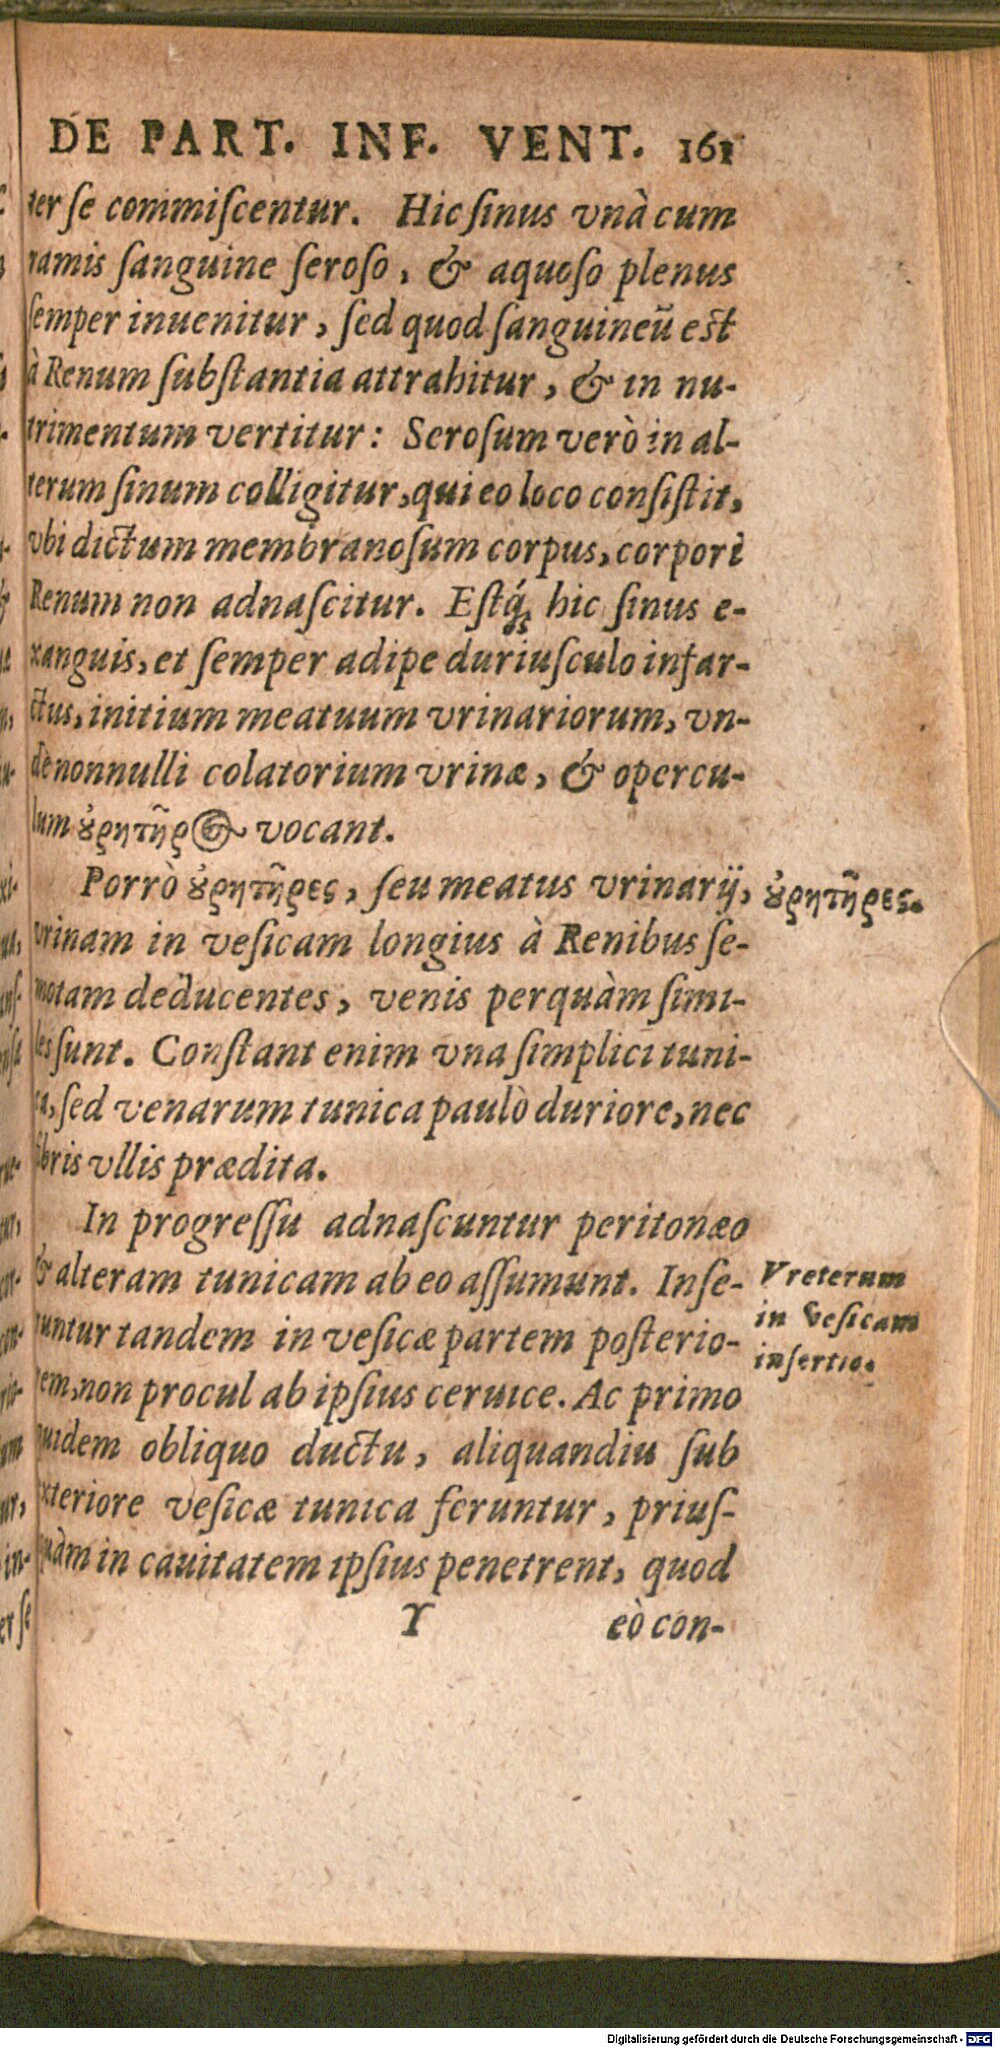 DE PART. INF. VENT. 161
ter ſe commiſcentur. Hic ſinus vnà cum
ramis ſanguine ſeroſo, & aquoſo plenus
ſemper inuenitur, ſed quod ſanguineũ est
à Renum ſubſtantia attrahitur, & in nu-
trimentum vertitur: Seroſum verò in al-
terum ſinum colligitur, qui eo loco conſiſtit,
vbi dictum membranoſum corpus, corpori
Renum non adnaſcitur. Eſtq́; hic ſinus e-
xanguis, et ſemper adipe duriuſculo infar-
ctus, initium meatuum vrinariorum, vn-
dè nonnulli colatorium vrinæ, & opercu-
lum ȣ̓ρητῆρος vocant.
Porrò ȣ̓ρητῆρες, ſeu meatus vrinarij,
ȣ̓ρητῆρες.
vrinam in veſicam longius à Renibus ſe-
motam deducentes, venis perquàm ſimi-
les ſunt. Conſtant enim vna ſimplici tuni-
ca, ſed venarum tunica paulò duriore, nec
fibris vllis prædita.
In progreſſu adnaſcuntur peritonæo
& alteram tunicam ab eo aſſumunt. Inſe-
runtur tandem in veſicæ partem poſterio-
rem, non procul ab ipſius ceruice. Ac primo
Vreterum
in veſicam
inſertio.
quidem obliquo ductu, aliquandiu ſub
exteriore veſicæ tunica feruntur, priuſ-
quàm in cauitatem ipſius penetrent, quod
Y eò con-
Digitalisierung gefördert durch die Deutsche Forschungsgemeinschaft - DFG